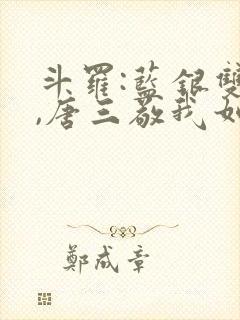 斗羅:藍銀雙
,唐三敬我如
鄭成章